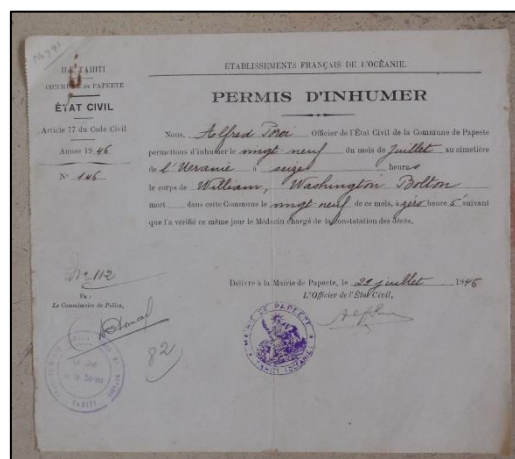 ILE TAHITI
COMMUNE DE PAPEETE
ÉTAT CIVIL
Article 77 du Code Civil
Année 1946
N° 146
ETABLISSEMENTS FRANÇAIS DE L'OCÉANIE.
PERMIS D'INHUMER
Nous, Alfred Poroi Officier de l'État Civil de la Commune de Papeete
permettons d'inhumer le vingt neuf du mois de Juillet au cimetière
de l'Uranie à seize heures
le corps de William, Washington Bolton
mort dans cette Commune le vingt neuf de ce mois, à zéro heure 5' suivant
que l'a vérifié ce même jour le Médecin chargé de la constatation des décès.
Délivré à la Mairie de Papeete, le 29 juillet 1946
L'Officier de l'État Civil,
N° 112
Vu :
Le Commissaire de Police,
82
MAIRIE DE PAPEETE
TAHITI